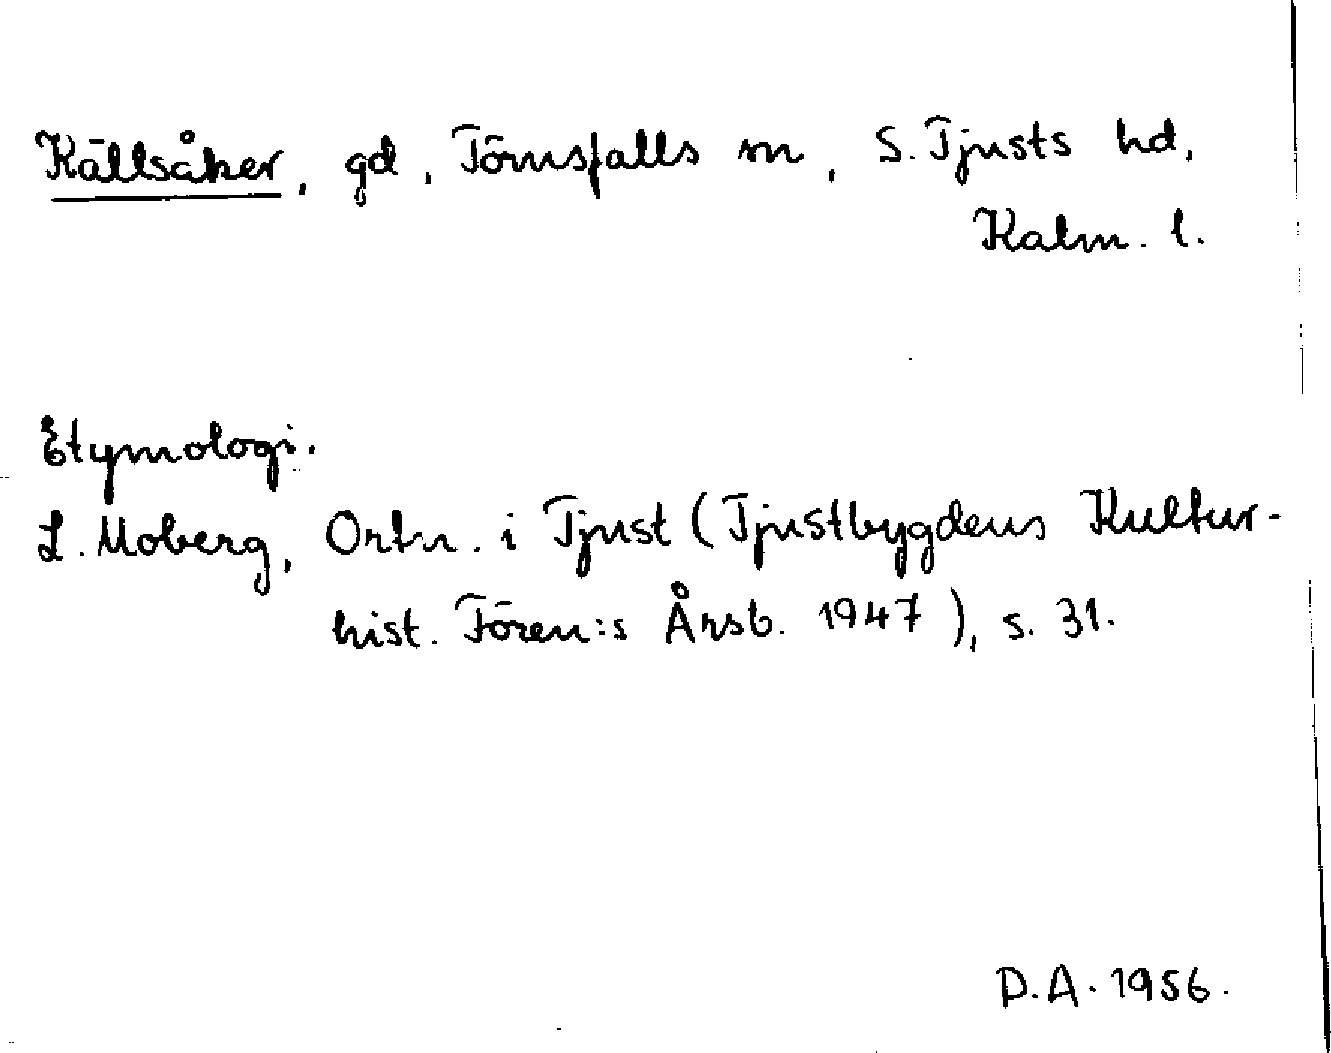 Källsåker, gd, Törnsfalls sn, S. Tjusts hd,
Kalm. l.
Etymologi.
L. Moberg, Ortn. i Tjust (Tjustbygdens Kultur-
hist. Fören:s Årsb. 1947), s. 31.
D.A. 1956.